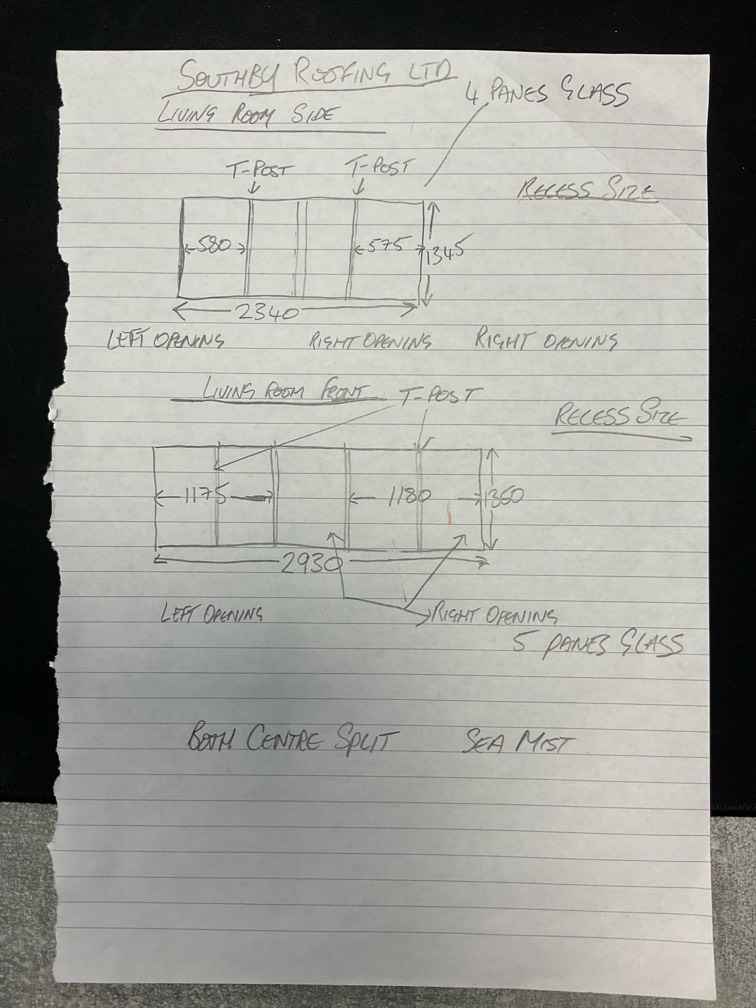 SOUTHBY ROOFING LTD
LIVING ROOM SIDE
4 PANES GLASS
T-POST T-POST
RECESS SIZE
580 575 1345
2340
LEFT OPENING RIGHT OPENING RIGHT OPENING
LIVING ROOM FRONT T-POST
RECESS SIZE
1175 1180 1350
2930
LEFT OPENING RIGHT OPENING
5 PANES GLASS
BOTH CENTRE SPLIT SEA MIST